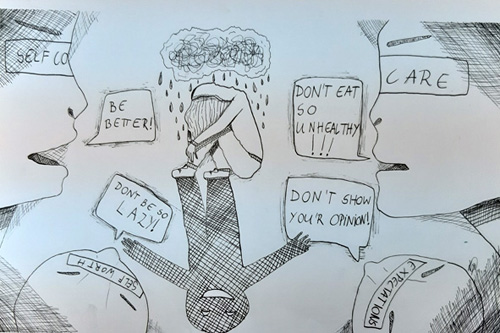 SELF CO
BE
BETTER!
DON'T EAT
SO
UNHEALTHY
!!!
CARE
DONT BE SO
LAZY!
DON'T SHOW
YOU'R OPINION!
SELF WORTH
EXPECTATIONS